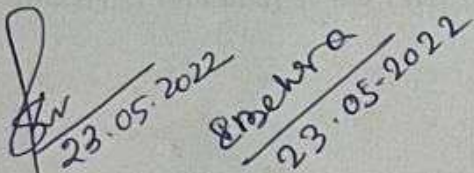 23.05.2022
SBehera
23.05-2022